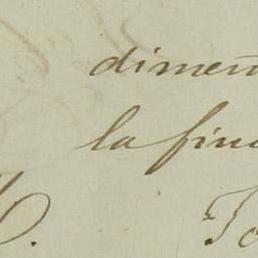 dimen
la fin
To